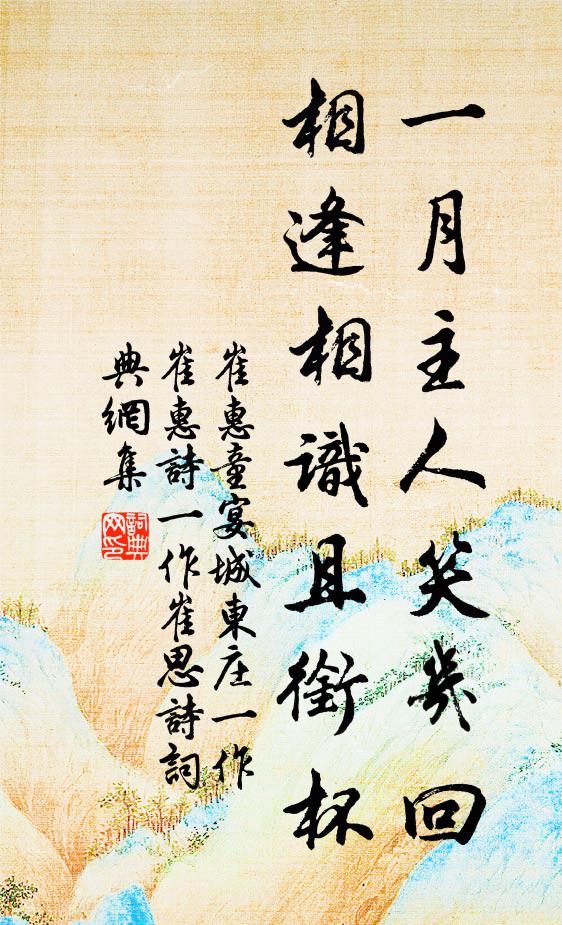 一月主人笑幾回
相逢相識且銜杯
崔惠童宴城東庄一作
崔惠詩一作崔思詩詞
典網集
詞典
网印